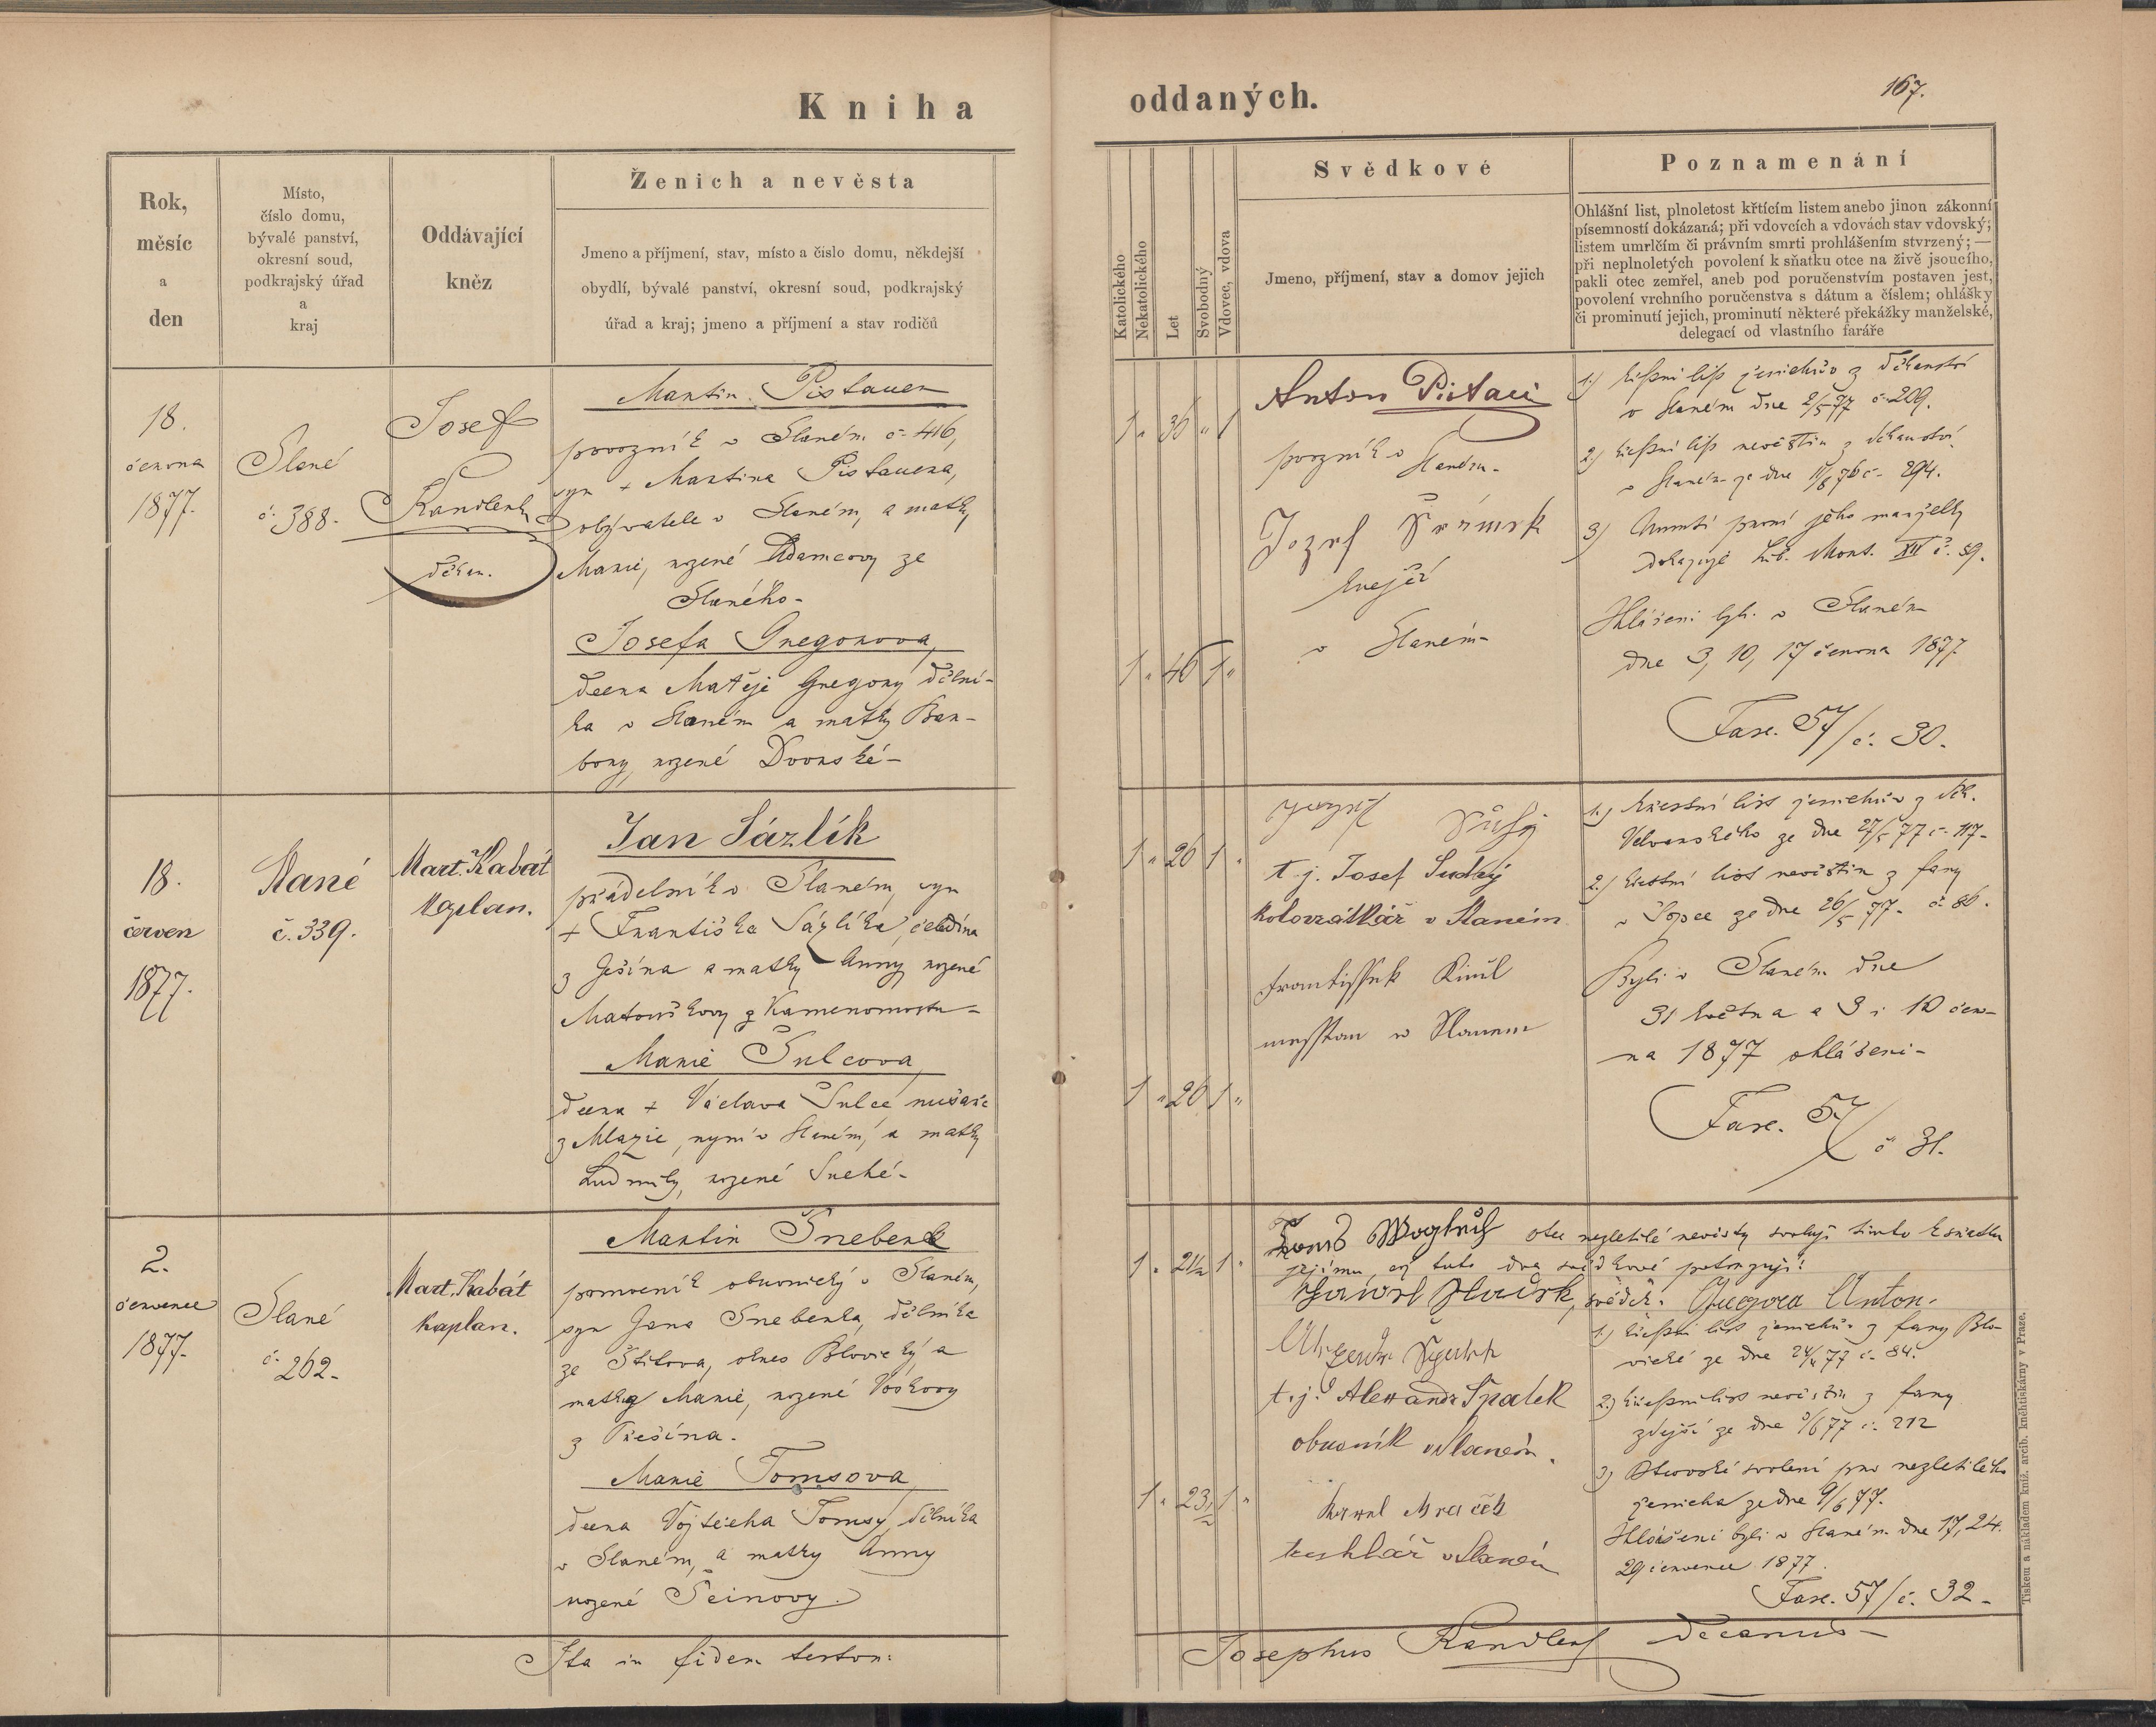 Kniha
oddaných.
167.
Rok,
měsíc
a
den
Místo,
číslo domu,
bývalé panství,
okresní soud,
podkrajský úřad
a
kraj
Oddávající
kněz
Ženich a nevěsta
Jmeno a příjmení, stav, místo a číslo domu, někdejší
obydlí, bývalé panství, okresní soud, podkrajský
úřad a kraj; jmeno a příjmení a stav rodičů
Katolického
Nekatolického
Let
Svobodný
Vdovec, vdova
Svědkové
Jmeno, příjmení, stav a domov jejich
Poznamenání
Ohlášní list, plnoletost křtícím listem anebo jinou zákonní
písemností dokázaná; při vdovcích a vdovách stav vdovský;
listem umrlčím či právním smrti prohlášením stvrzený; —
při neplnoletých povolení k sňatku otce na živě jsoucího,
pakli otec zemřel, aneb pod poručenstvím postaven jest,
povolení vrchního poručenstva s dátum a číslem; ohlášky
či prominutí jejich, prominutí některé překážky manželské,
delegací od vlastního faráře
18.
června
1877.
Slané
č. 388.
Josef
Kandlenk
děkan.
Martin Pistauer
v Slaném č. 416,
syn + Martina Pistauera,
obývatele v Slaném, a matky
Marie, rozené Adamcovy ze
Slaného.
Josefa Gregorova,
dcera Matěje Gregory dělní-
ka v Slaném a matky Bar-
bory, rozené Dvorské.
1 " 36 " 1
1 " 46 1 "
Anton
v Slaném
Jozef Šrámek
krejčí
v Slaném
1.) Křestní list ženichův z děkanství
v Slaném dne 2/5 77 č. 209.
2.) Křestní list nevěstin z děkanství
v Slaném ze dne 11/8 76 č. 294.
3) Úmrtí první jeho manželky
dokazuje Lib. Mort. XII č. 59.
Hlášeni byli v Slaném
dne 3, 10, 17 června 1877
Fasc. 57/č. 30.
18.
červen
1877.
Slané
č. 339.
Mart. Kabát
kaplan.
Jan Sázlík
přádelník v Slaném, syn
+ Františka Sázlíka, čeledína
z Ješína a matky Anny rozené
Matouškovy z Kamenomostu
Marie Šulcova,
dcera + Václava Šulce
nyní v Slaném, a matky
Ludmily, rozené Suché.
1 " 26 1 "
1 " 26 1 "
Jozef Suchý
t. j. Josef Suchý
kolovrátkář v Slaném
Frantissek
messtan w Slanem
1.) Křestní list ženichův z děk.
Velvarského ze dne 27/5 77 č. 117.
2.) Křestní list nevěstin z fary
ze dne 26/5 77. č. 86.
Byli v Slaném dne
31 května a 3 i 10 červ-
na 1877 ohlášeni.
Fasc. 57/č 31.
2.
července
1877.
Slané
č. 262.
Mart. Kabát
kaplan.
Martin
pomocník obuvnický v Slaném,
syn Jana dělníka
ze Štítova, okres Blovický, a
matky Marie, rozené
z
Marie Tomsova
dcera Vojtěcha Tomsy dělníka
v Slaném, a matky Anny
rozené
1 " 21 1/2 1 "
1 " 23 1/2 1 "
otec nezletilé nevěsty svoluji tímto k sňatku
jejímu, což tuto dva svědkové potvrzují:
svědek. Gregora Anton.
t. j. Alexandr Špaček
obuvník v Slaném.
Karel Mraček
truhlář v Slaném
1.) Křestní list ženichův z fary Blo-
vické ze dne 24/4 77 č. 84.
2.) Křestní list nevěstin z fary
zdejší ze dne 9/6 77 č. 212
3) Otcovské svolení pro nezletilého
ženicha ze dne 9/6 77.
Hlášeni byli v Slaném dne 17, 24.
29 července 1877.
Fasc. 57/č. 32.
Ita in fidem testor:
Josephus Decanus
Tiskem a nákladem kníž. arcib. knihtiskárny v Praze.